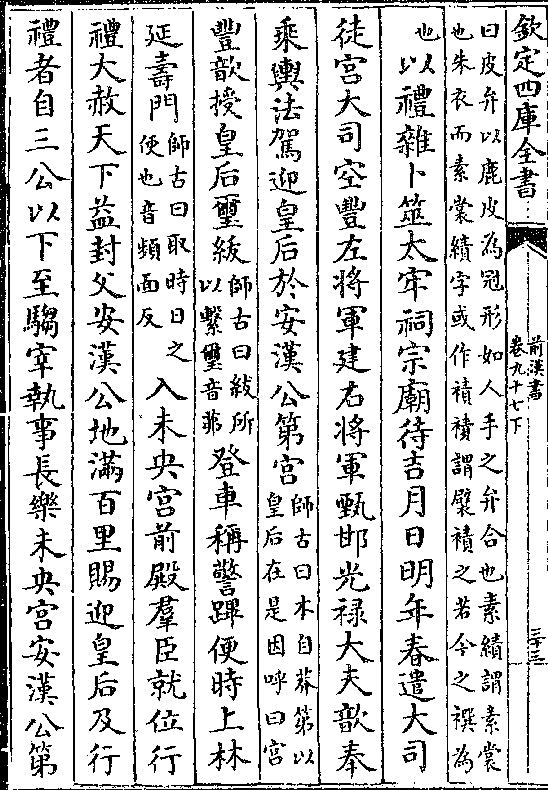 欽定四庫全書
前漢書
卷九十七下
三十三
曰皮弁以鹿皮為冠形如人手之弁合也素績謂素裳
也朱衣而素裳績字或作𧝓𧝓謂襞𧝓之若今之襈為
也以禮雜卜筮太牢祠宗廟待吉月日明年春遣大司
徒宮大司空豐左將軍建右將軍甄邯光祿大夫歆奉
乘輿法駕迎皇后於安漢公第宮師古曰本自莽第以
皇后在是因呼曰宮
豐歆授皇后璽紱師古曰紱所
以繫璽音弗登車稱警蹕便時上林
延壽門師古曰取時日之
便也音頻面反入未央宮前殿羣臣就位行
禮大赦天下益封父安漢公地滿百里賜迎皇后及行
禮者自三公以下至騶宰執事長樂未央宮安漢公第